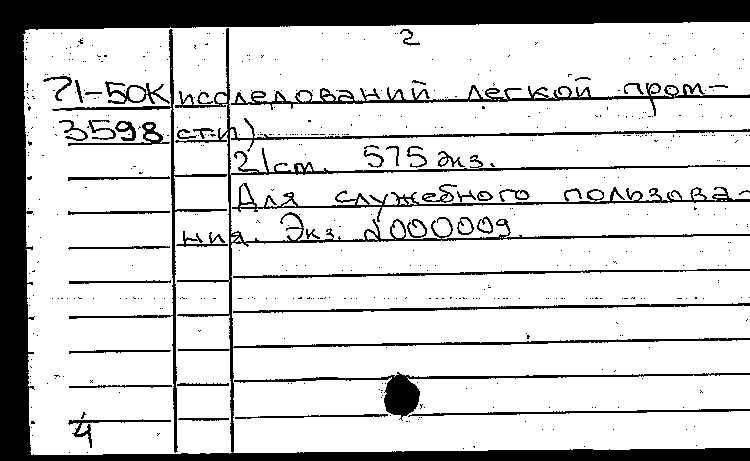 2
71-50К исследований легкой пром-
3598 сти).
21 ст. 575 экз.
Для служебного пользова-
ния. Экз. №000009.
4